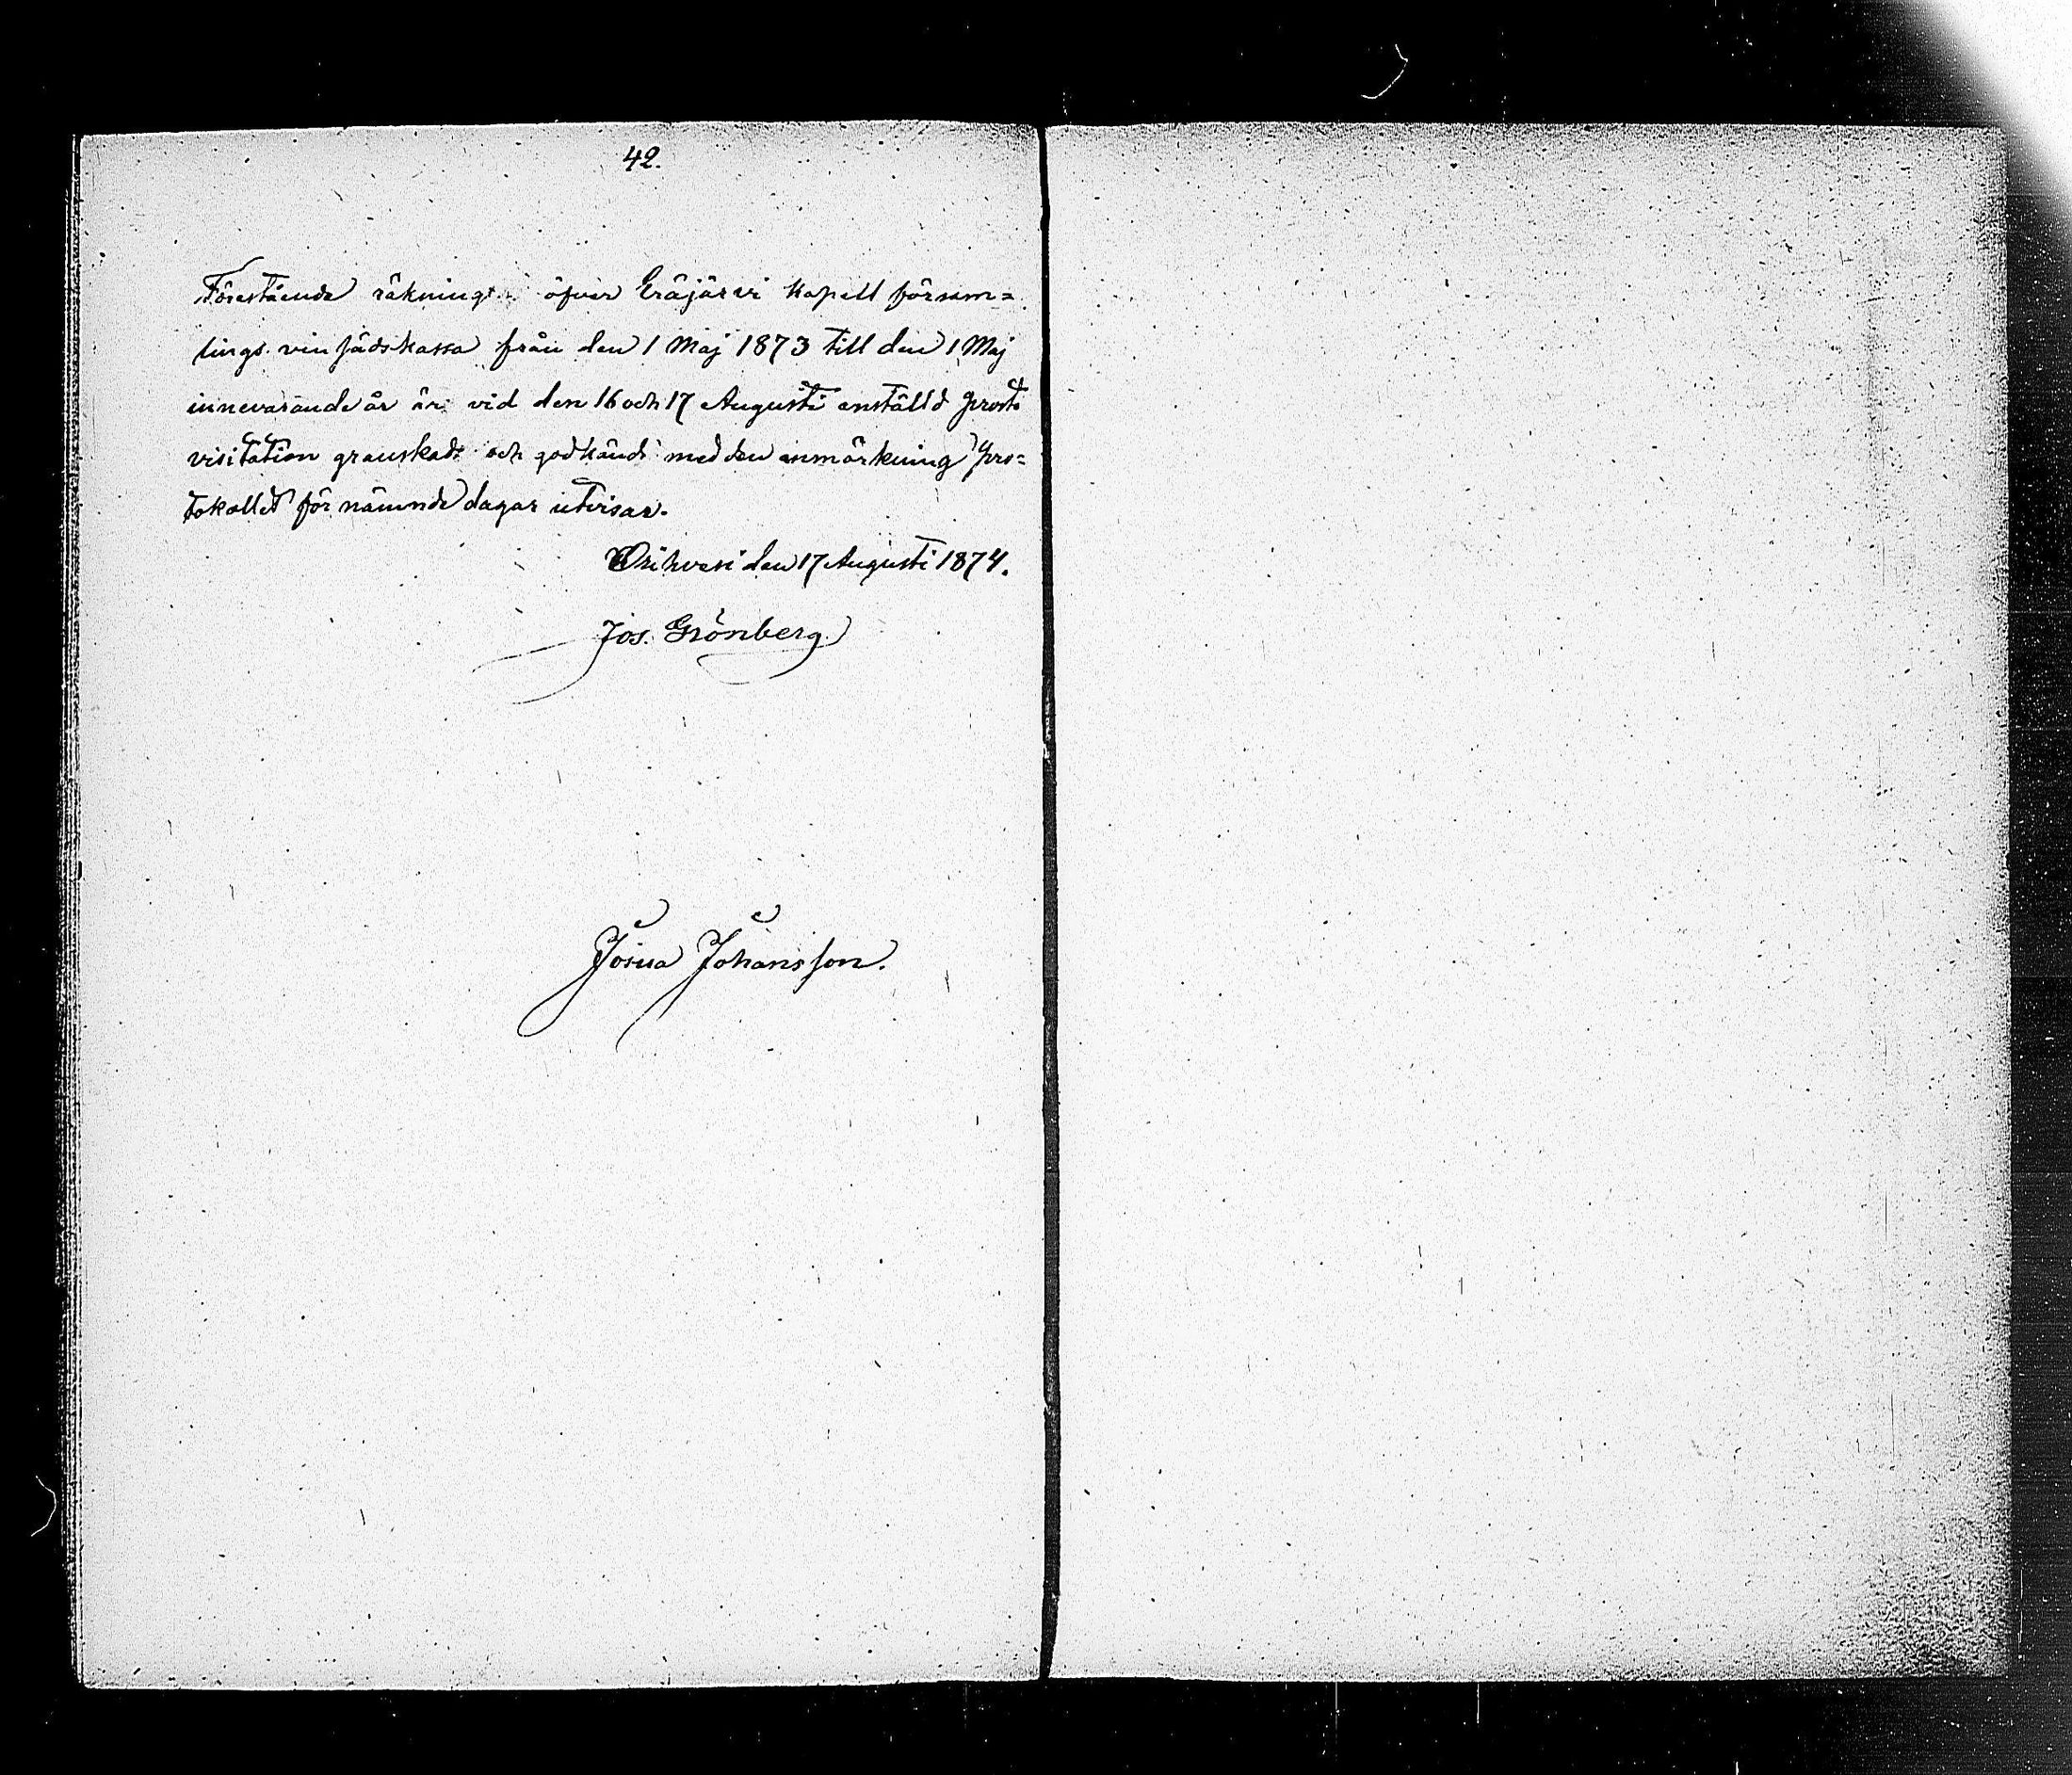 42.
Förestående räkning öfver Eräjärvi Kapell försam=
lings vinsädskassa från den 1 Maj 1873 till den 1 Maj
innevarande år är vid den 16 och 17 Augusti anställd prosti
visitation granskad och godkänd med den anmärkning pro=
tokollet för nämnde dagar utvisar.
Orihvesi den 17 Augusti 1874.
Jos. Grönberg
Josua Johansson.